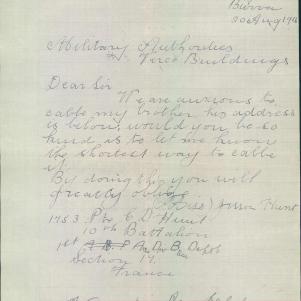 Burra
30 Aug 191
Military Authorities
Buildings
Dear Sir
We are anxious to
cable my brother his address
is below, would you be so
kind as to let me know
the shortest way to cable
it
By doing this you will
greatly oblige
(Miss) Hunt
1783 Pte C D Hunt
10th Battalion
1st A.D.B. Depot
Section 17
France